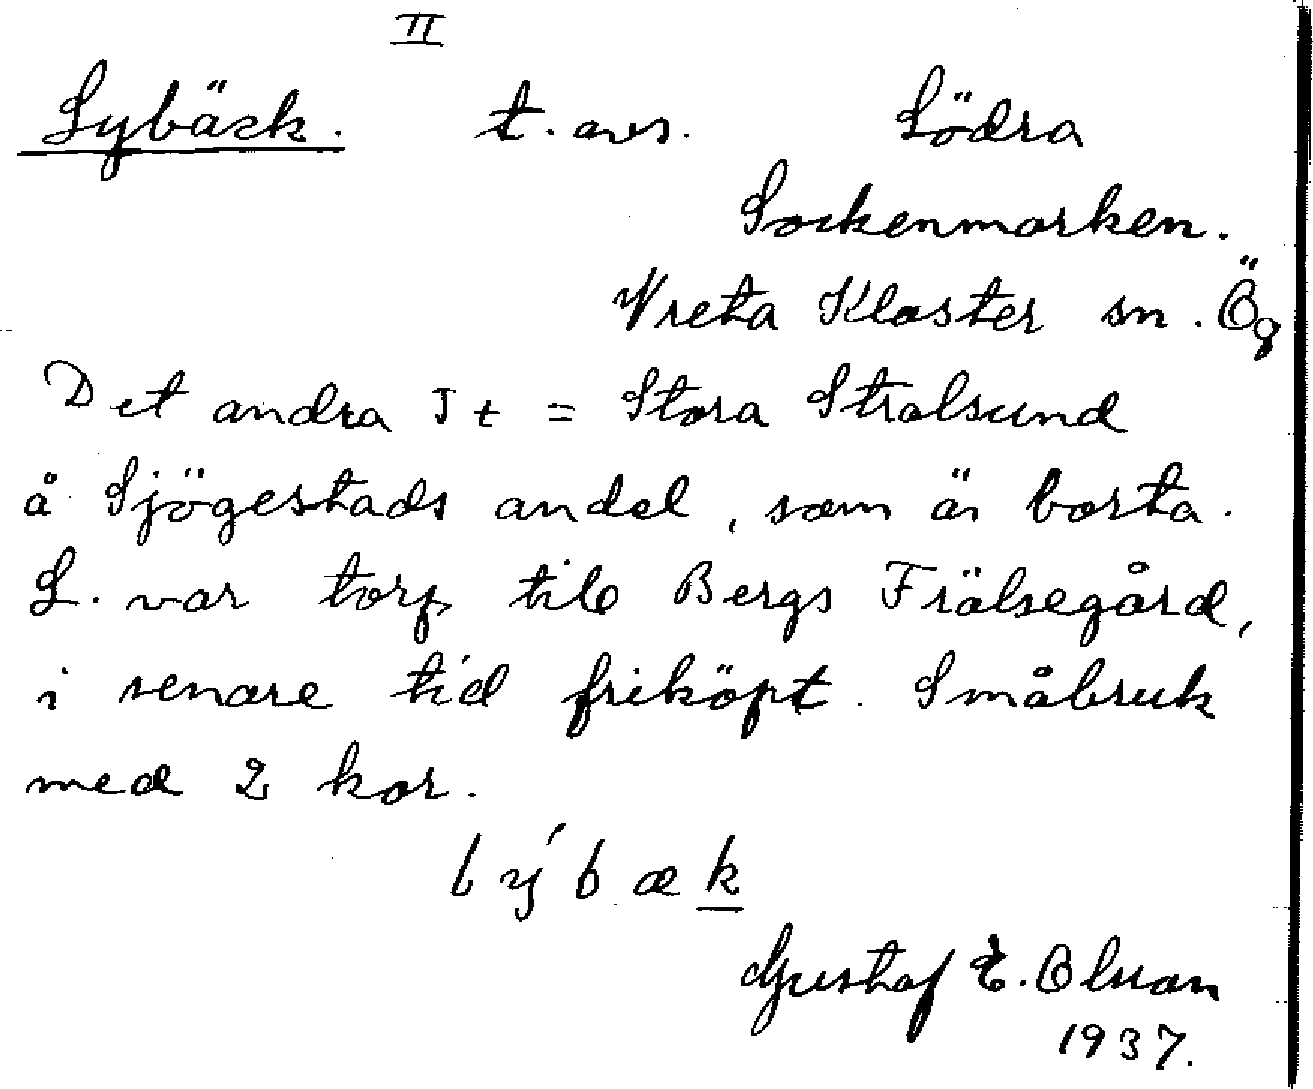 II
Lybäck. t. avs. Södra
Sockenmarken.
Vreta Kloster sn. Ög
Det andra I t = Stora Stralsund
å Sjögestads andel, som är borta.
L. var torp till Bergs Frälsegård,
i senare tid friköpt. Småbruk
med 2 kor.
lýbæk
Gustaf E. Olsson
1937.